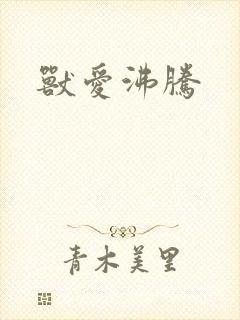 獸愛沸騰
青木美里